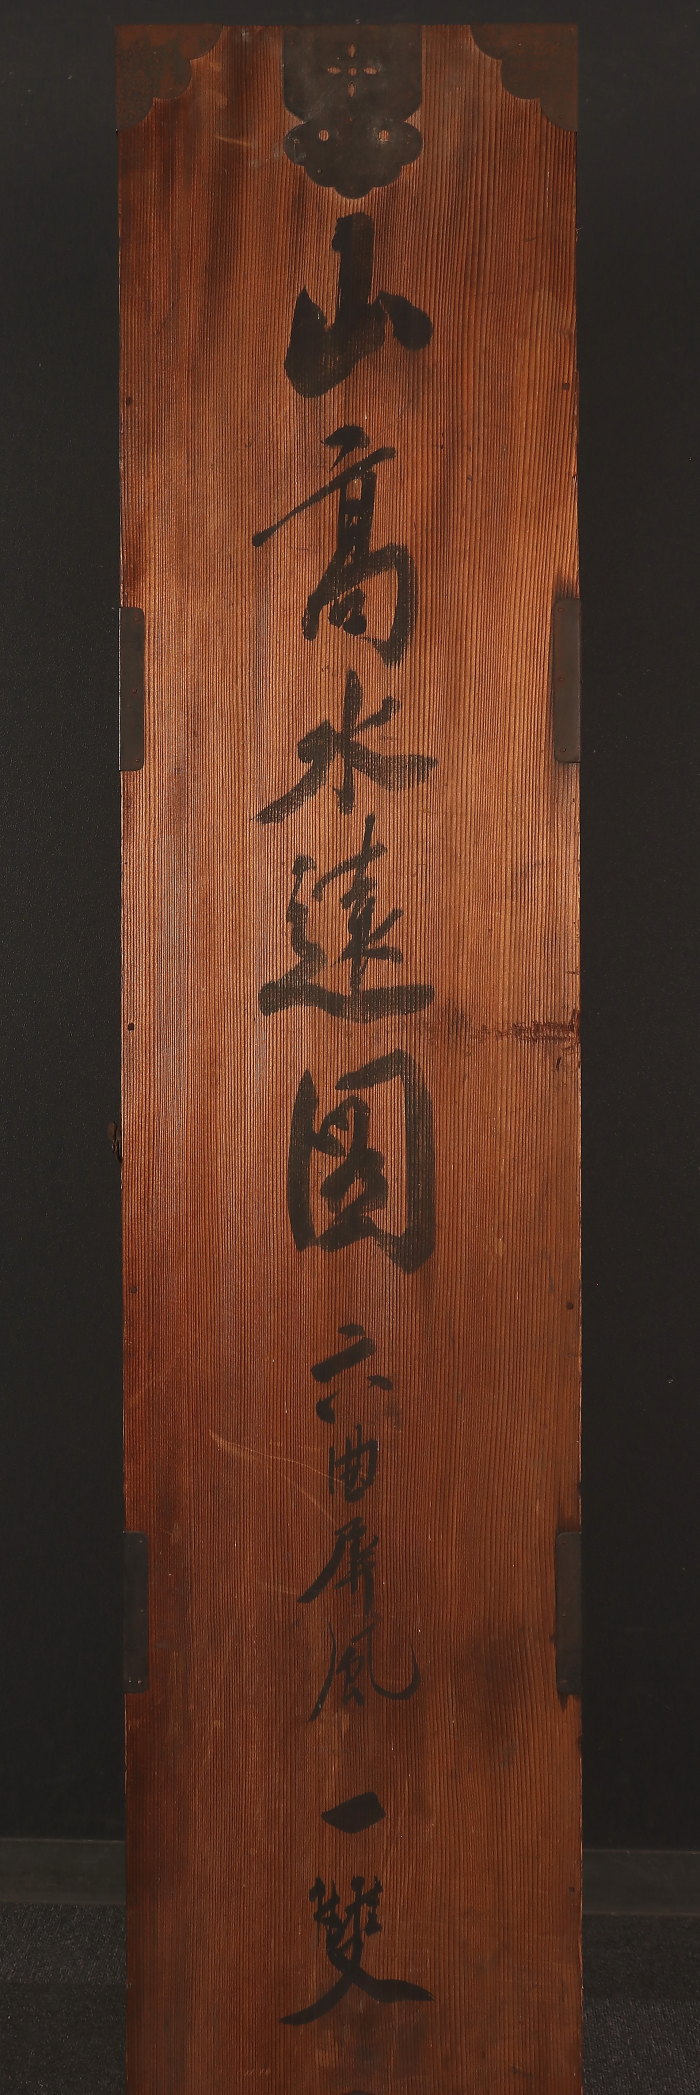 山高水遠図六曲屏風一雙